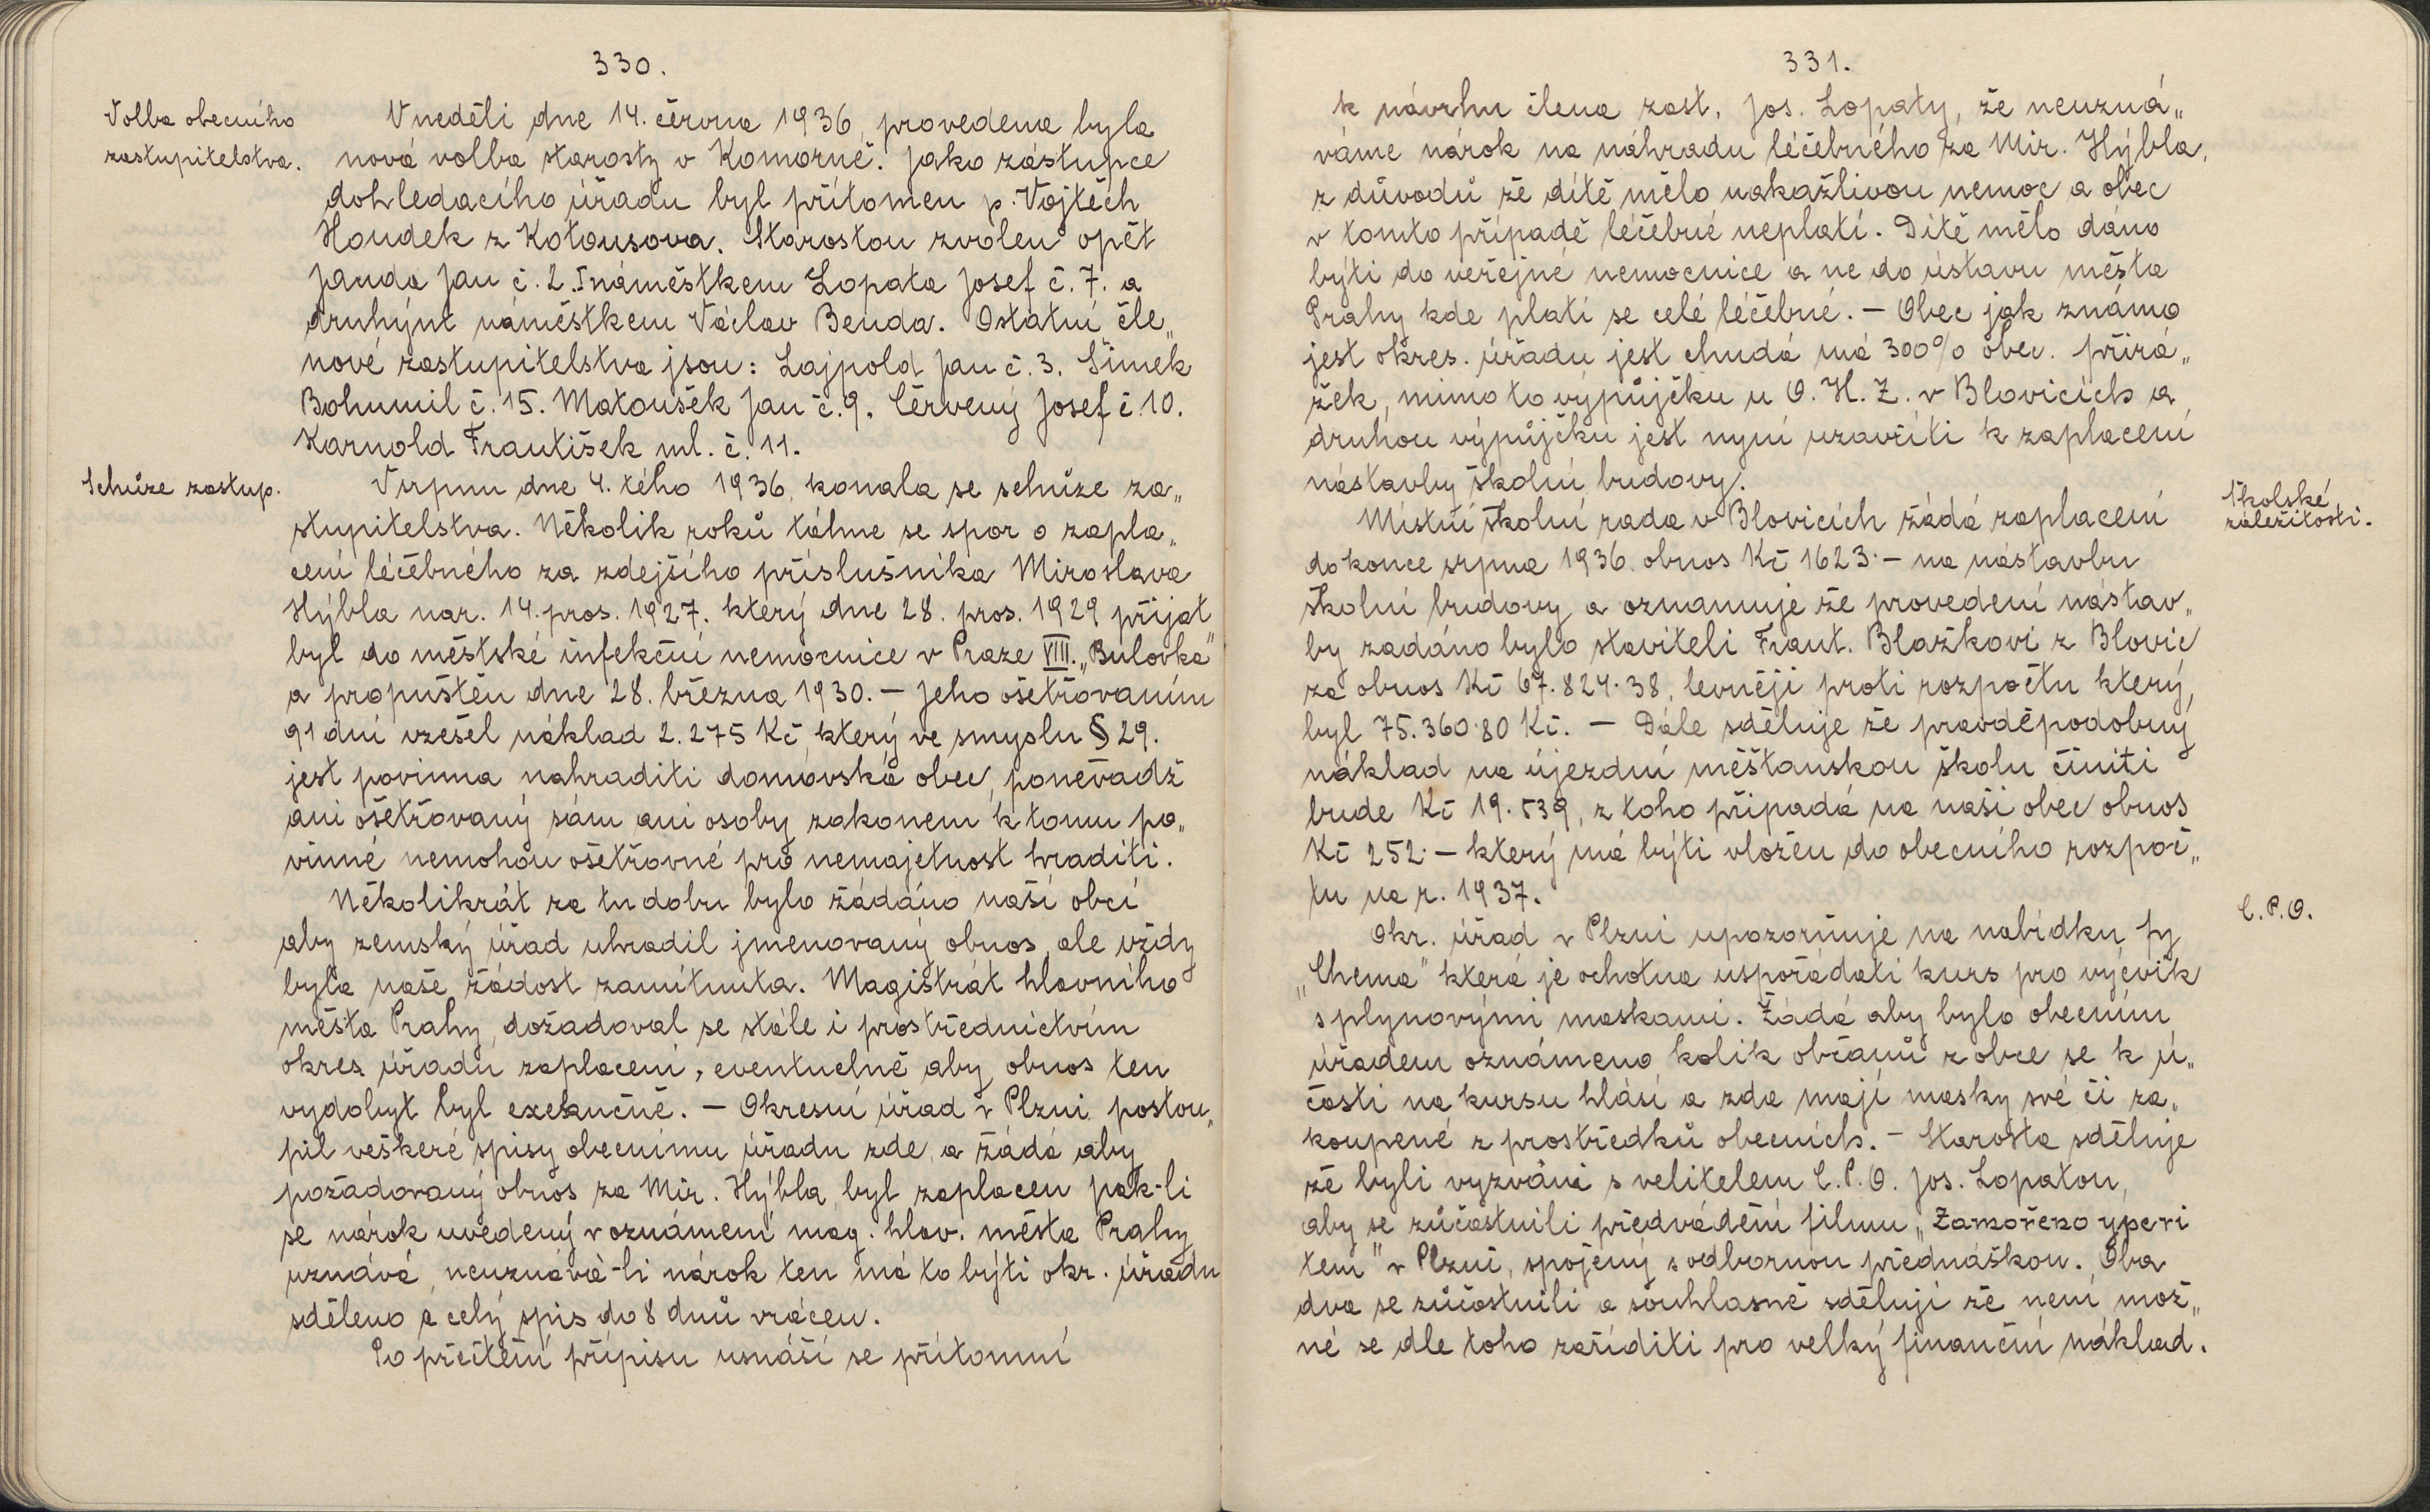 330.
Volba obecního
zastupitelstva.
V neděli dne 14. června 1936, provedena byla
nová volba starosty v Komorně. Jako zástupce
dohledacího úřadu byl přítomen p. Vojtěch
Houdek z Kotousova. Starostou zvolen opět
Janda Jan č. 2. I náměstkem Lopata Josef č. 7. a
druhým náměstkem Václav Benda. Ostatní čle„
nové zastupitelstva jsou: Lajpold Jan č. 3. Šimek
Bohumil č. 15. Matoušek Jan č. 9. Červený Josef č. 10.
Karnold František ml. č. 11.
Schůze zastup.
V srpnu dne 4. tého 1936, konala se schůze za„
stupitelstva. Několik roků táhne se spor o zapla„
cení léčebného za zdejšího příslušníka Miroslava
Hýbla nar. 14. pros. 1927. který dne 28. pros. 1929 přijat
byl do městské infekční nemocnice v Praze VIII. „Bulovka"
a propuštěn dne 28. března 1930. – Jeho ošetřovaním
91 dní vzešel náklad 2.275 Kč, který ve smyslu § 29.
jest povinna nahraditi domovská obec, poněvadž
ani ošetřovaný sám ani osoby zakonem k tomu po„
vinné nemohou ošetřovné pro nemajetnost hraditi.
Několikrát za tu dobu bylo žádáno naší obcí
aby zemský úřad uhradil jmenovaný obnos, ale vždy
byla naše žádost zamítnuta. Magistrát hlavního
města Prahy, dožadoval se stále i prostřednictvím
okres. úřadu zaplacení, eventuelně aby obnos ten
vydobyt byl exekučně. – Okresní úřad v Plzni postou„
pil veškeré spisy obecnímu úřadu zde, a žádá aby
požadovaný obnos za Mir. Hýbla, byl zaplacen pak-li
se nárok uvedený v oznámení mag. hlav. města Prahy
uznává, neuznává-li nárok ten má to býti okr. úřadu
sděleno a celý spis do 8 dnů vrácen.
Po přečtění přípisu usnáší se přítomní
331.
k návrhu člena zast. Jos. Lopaty, že neuzná„
váme nárok na náhradu léčebného za Mir. Hýbla,
z důvodů že dítě mělo nakažlivou nemoc a obec
v tomto případě léčebné neplatí. Dítě mělo dáno
býti do veřejné nemocnice a ne do ústavu města
Prahy kde platí se celé léčebné. – Obec jak známo
jest okres. úřadu jest chudá má 300% obec. přirá„
žek, mimo to výpůjčku u O. H. Z. v Blovicích a
druhou výpůjčku jest nyní uzavříti k zaplacení
nástavby školní budovy.
Školské
záležitosti.
Místní školní rada v Blovicích žádá zaplacení
do konce srpna 1936. obnos Kč 1623·– na nástavbu
školní budovy a oznamuje že provedení nástav„
by zadáno bylo staviteli Frant. Blažkovi z Blovic
za obnos Kč 67.824·38, levněji proti rozpočtu který,
byl 75.360·80 Kč. – Dále sděluje že pravděpodobný
náklad na újezdní měšťanskou školu činiti
bude Kč 19.539, z toho připadá na naši obec obnos
Kč 252·– který má býti vložen do obecního rozpoč„
tu na r. 1937.
C. P. O.
Okr. úřad v Plzni upozorňuje na nabídku fy
„Chema" která je ochotna uspořádati kurs pro výcvik
s plynovými maskami. Žádá aby bylo obecním
úřadem oznámeno kolik občanů z obce se k ú„
časti na kursu hlásí a zda mají masky své či za„
koupené z prostředků obecních. – Starosta sděluje
že byli vyzváni s velitelem C. P. O. Jos. Lopatou,
aby se zůčastnili předvádění filmu „Zamořeno yperi
tem" v Plzni, spojený s odbornou přednáškou. Oba
dva se zůčastnili a souhlasně sdělují že není mož„
né se dle toho zaříditi pro velký finanční náklad.